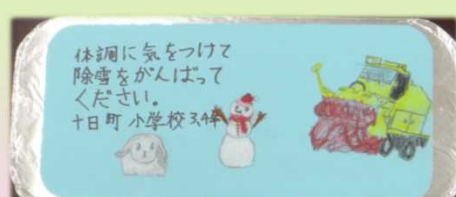 体調に気をつけて
除雪をがんばって
ください。
十日町小学校3,4年